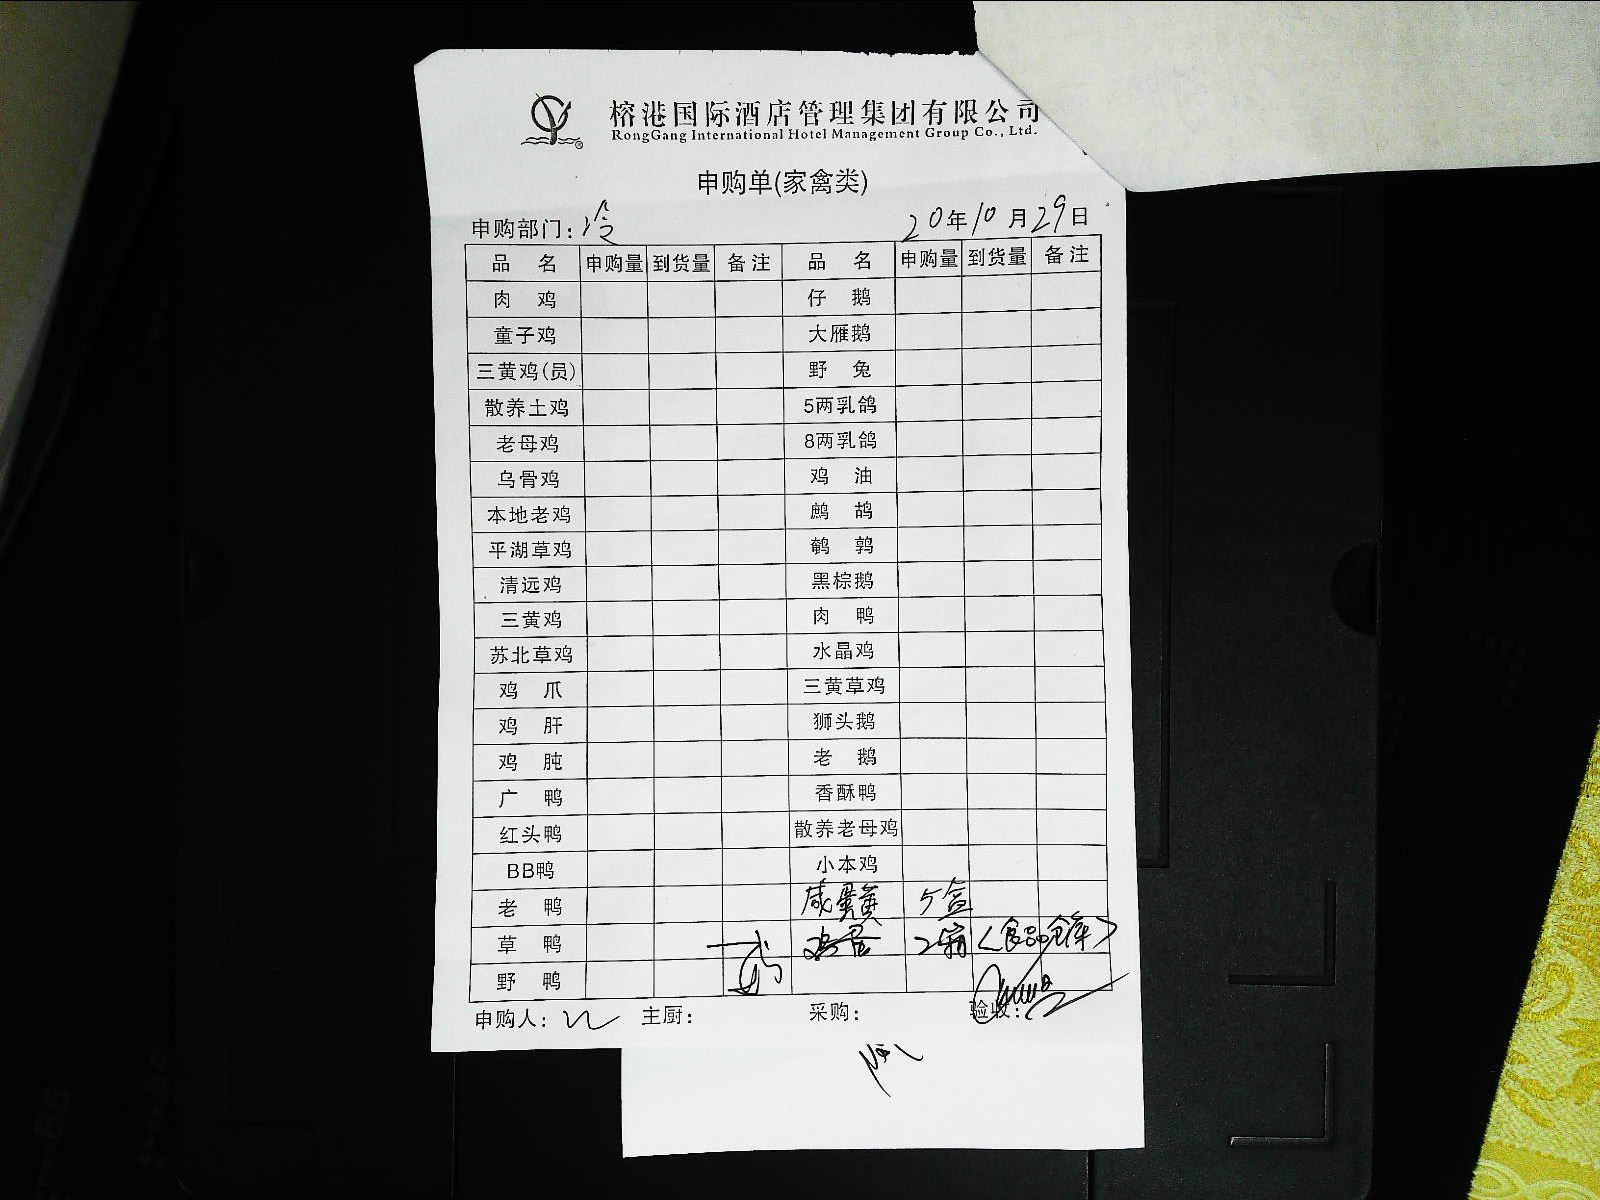 榕港国际酒店管理集团有限公司
RongGang International Hotel Management Group Co., Ltd.
申购单(家禽类)
申购部门：冷 20年10月29日
品名 申购量 到货量 备注 品名 申购量 到货量 备注
肉鸡 仔鹅
童子鸡 大雁鹅
三黄鸡(员) 野兔
散养土鸡 5两乳鸽
老母鸡 8两乳鸽
乌骨鸡 鸡油
本地老鸡 鹧鸪
平湖草鸡 鹌鹑
清远鸡 黑棕鹅
三黄鸡 肉鸭
苏北草鸡 水晶鸡
鸡爪 三黄草鸡
鸡肝 狮头鹅
鸡肫 老鹅
广鸭 香酥鸭
红头鸭 散养老母鸡
BB鸭 小本鸡
老鸭 咸蛋黄 5盒
草鸭 鸡蛋 2箱 (食品仓库)
野鸭
申购人： 主厨： 采购： 验收：